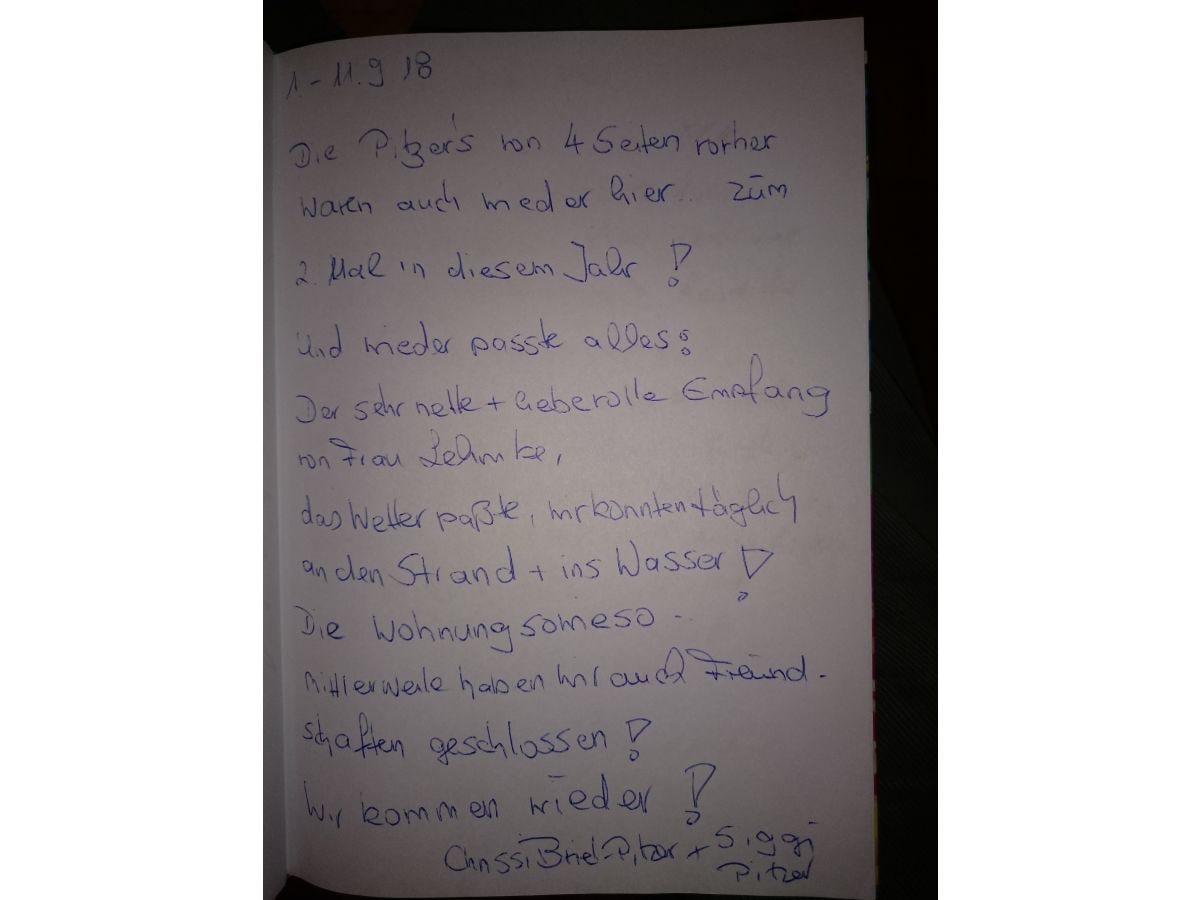 1.- 11.9 18
Die Pitzer's von 4 Seiten vorher
waren auch wieder hier.. zum
2. Mal in diesem Jahr!
Und wieder passte alles:
Der sehr nette + liebevolle Empfang
von Frau Lehmke,
das Wetter paßte, wir konnten täglich
an den Strand + ins Wasser!
Die Wohnung sowieso -
mittlerweile haben wir auch Freund-
schaften geschlossen!
Wir kommen wieder!
Chrissi Briel-Pitzer + Siggi
Pitzer